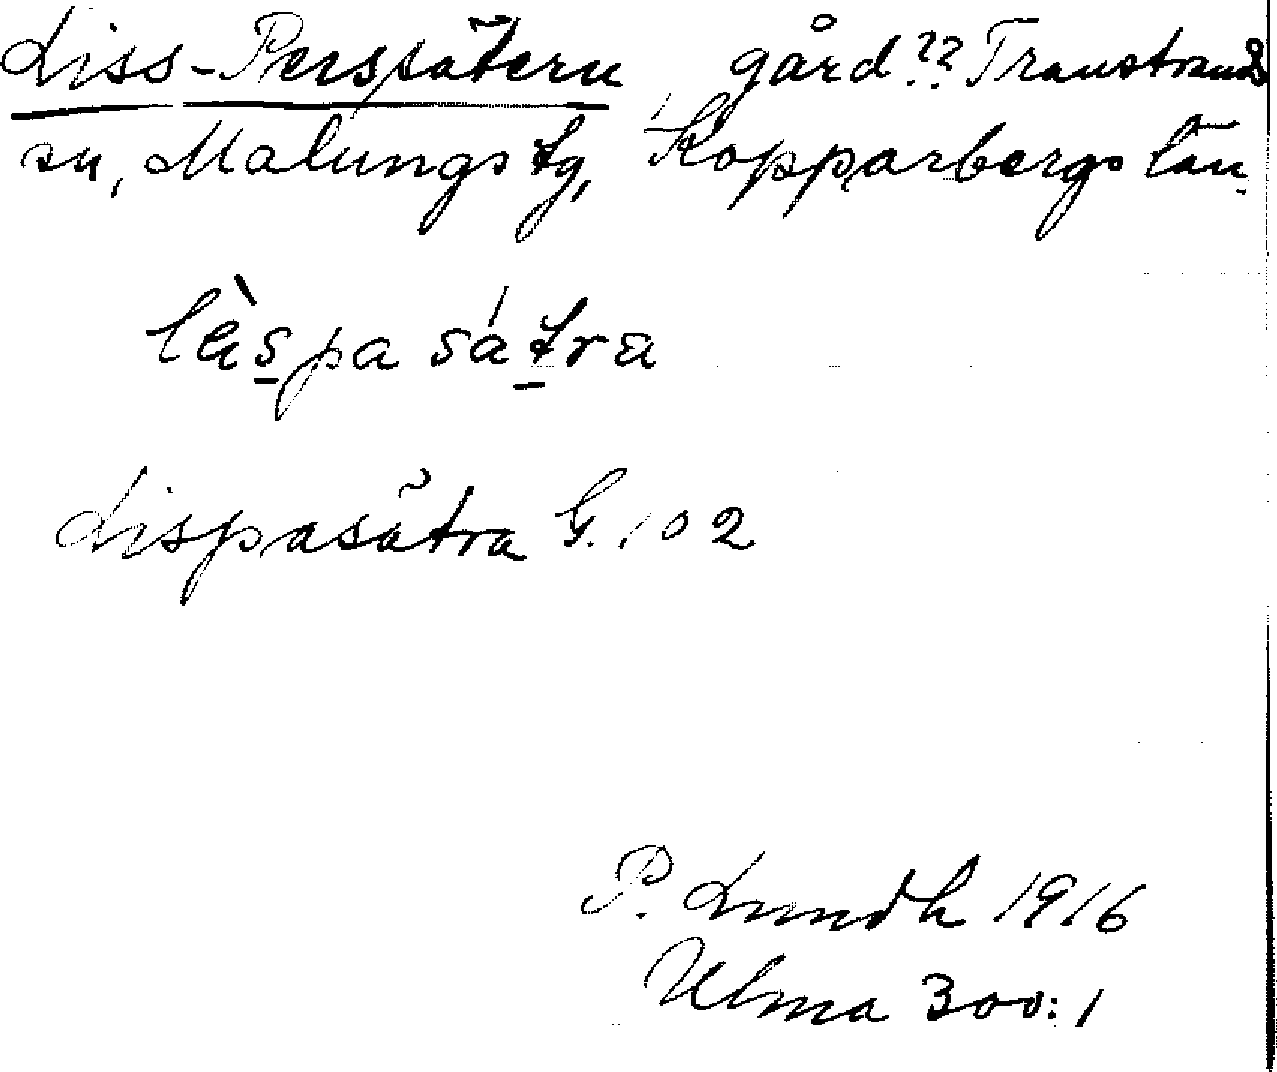 Liss-Perssätern, gård?? Transtrands
sn, Malungs tg, Kopparbergs län.
lѐspa sátra
Lispasätra G. 102
P. Lundh 1916
Ulma 300:1